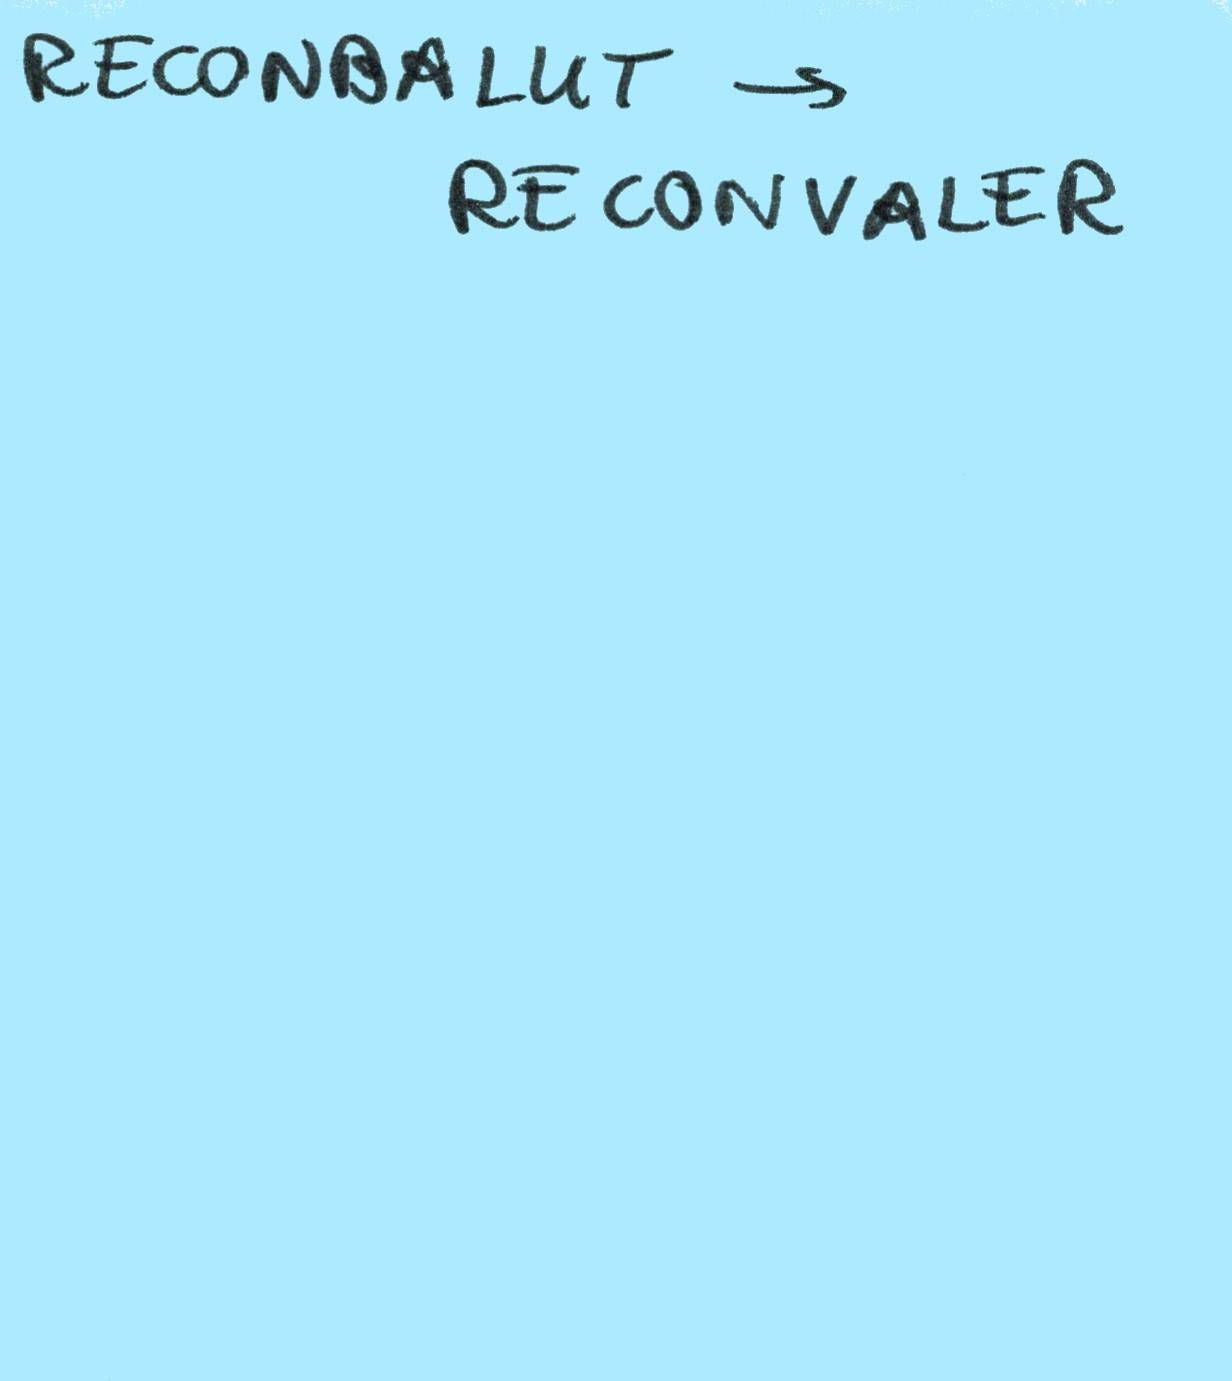 RECONBALUT →
RECONVALER